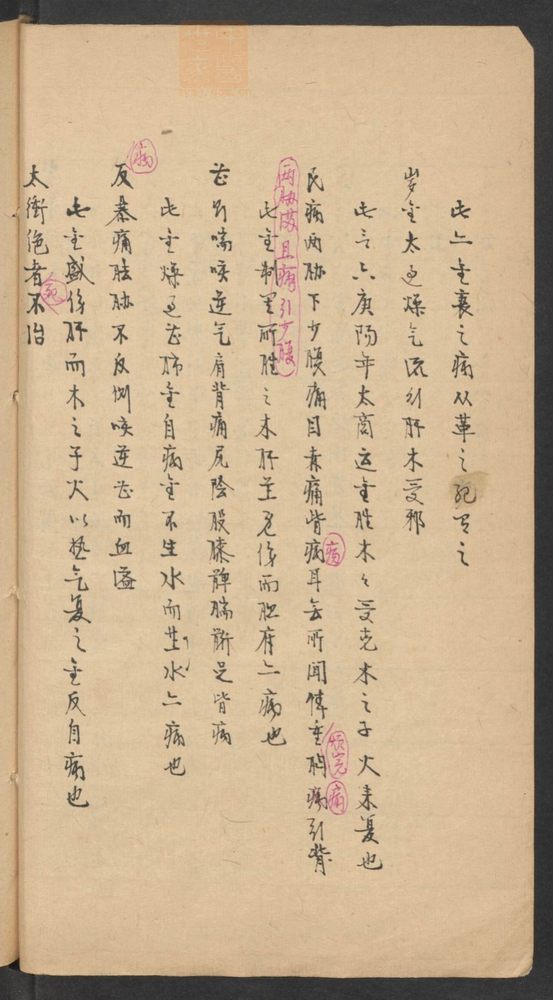 此亦金衰之病从革之纪有之
岁金太过燥气流行肝木受邪
此言六庚阳年太商运金胜木木受克木之子火来复也
民病两胁下少腹痛目赤痛眥疡耳无所闻体重烦冤胸痛引背
两胁满且痛引少腹
此金制其所胜之木肝至危伤而胆府亦病也
甚则喘咳逆气肩背痛尻阴股膝髀腨䯒足皆病
此金燥过甚肺金自病金不生水而其水亦病也
病反暴痛胠胁不可反侧咳逆甚而血溢
此金盛伤肝而木之子火以热气复之金反自病也
太冲绝者死不治